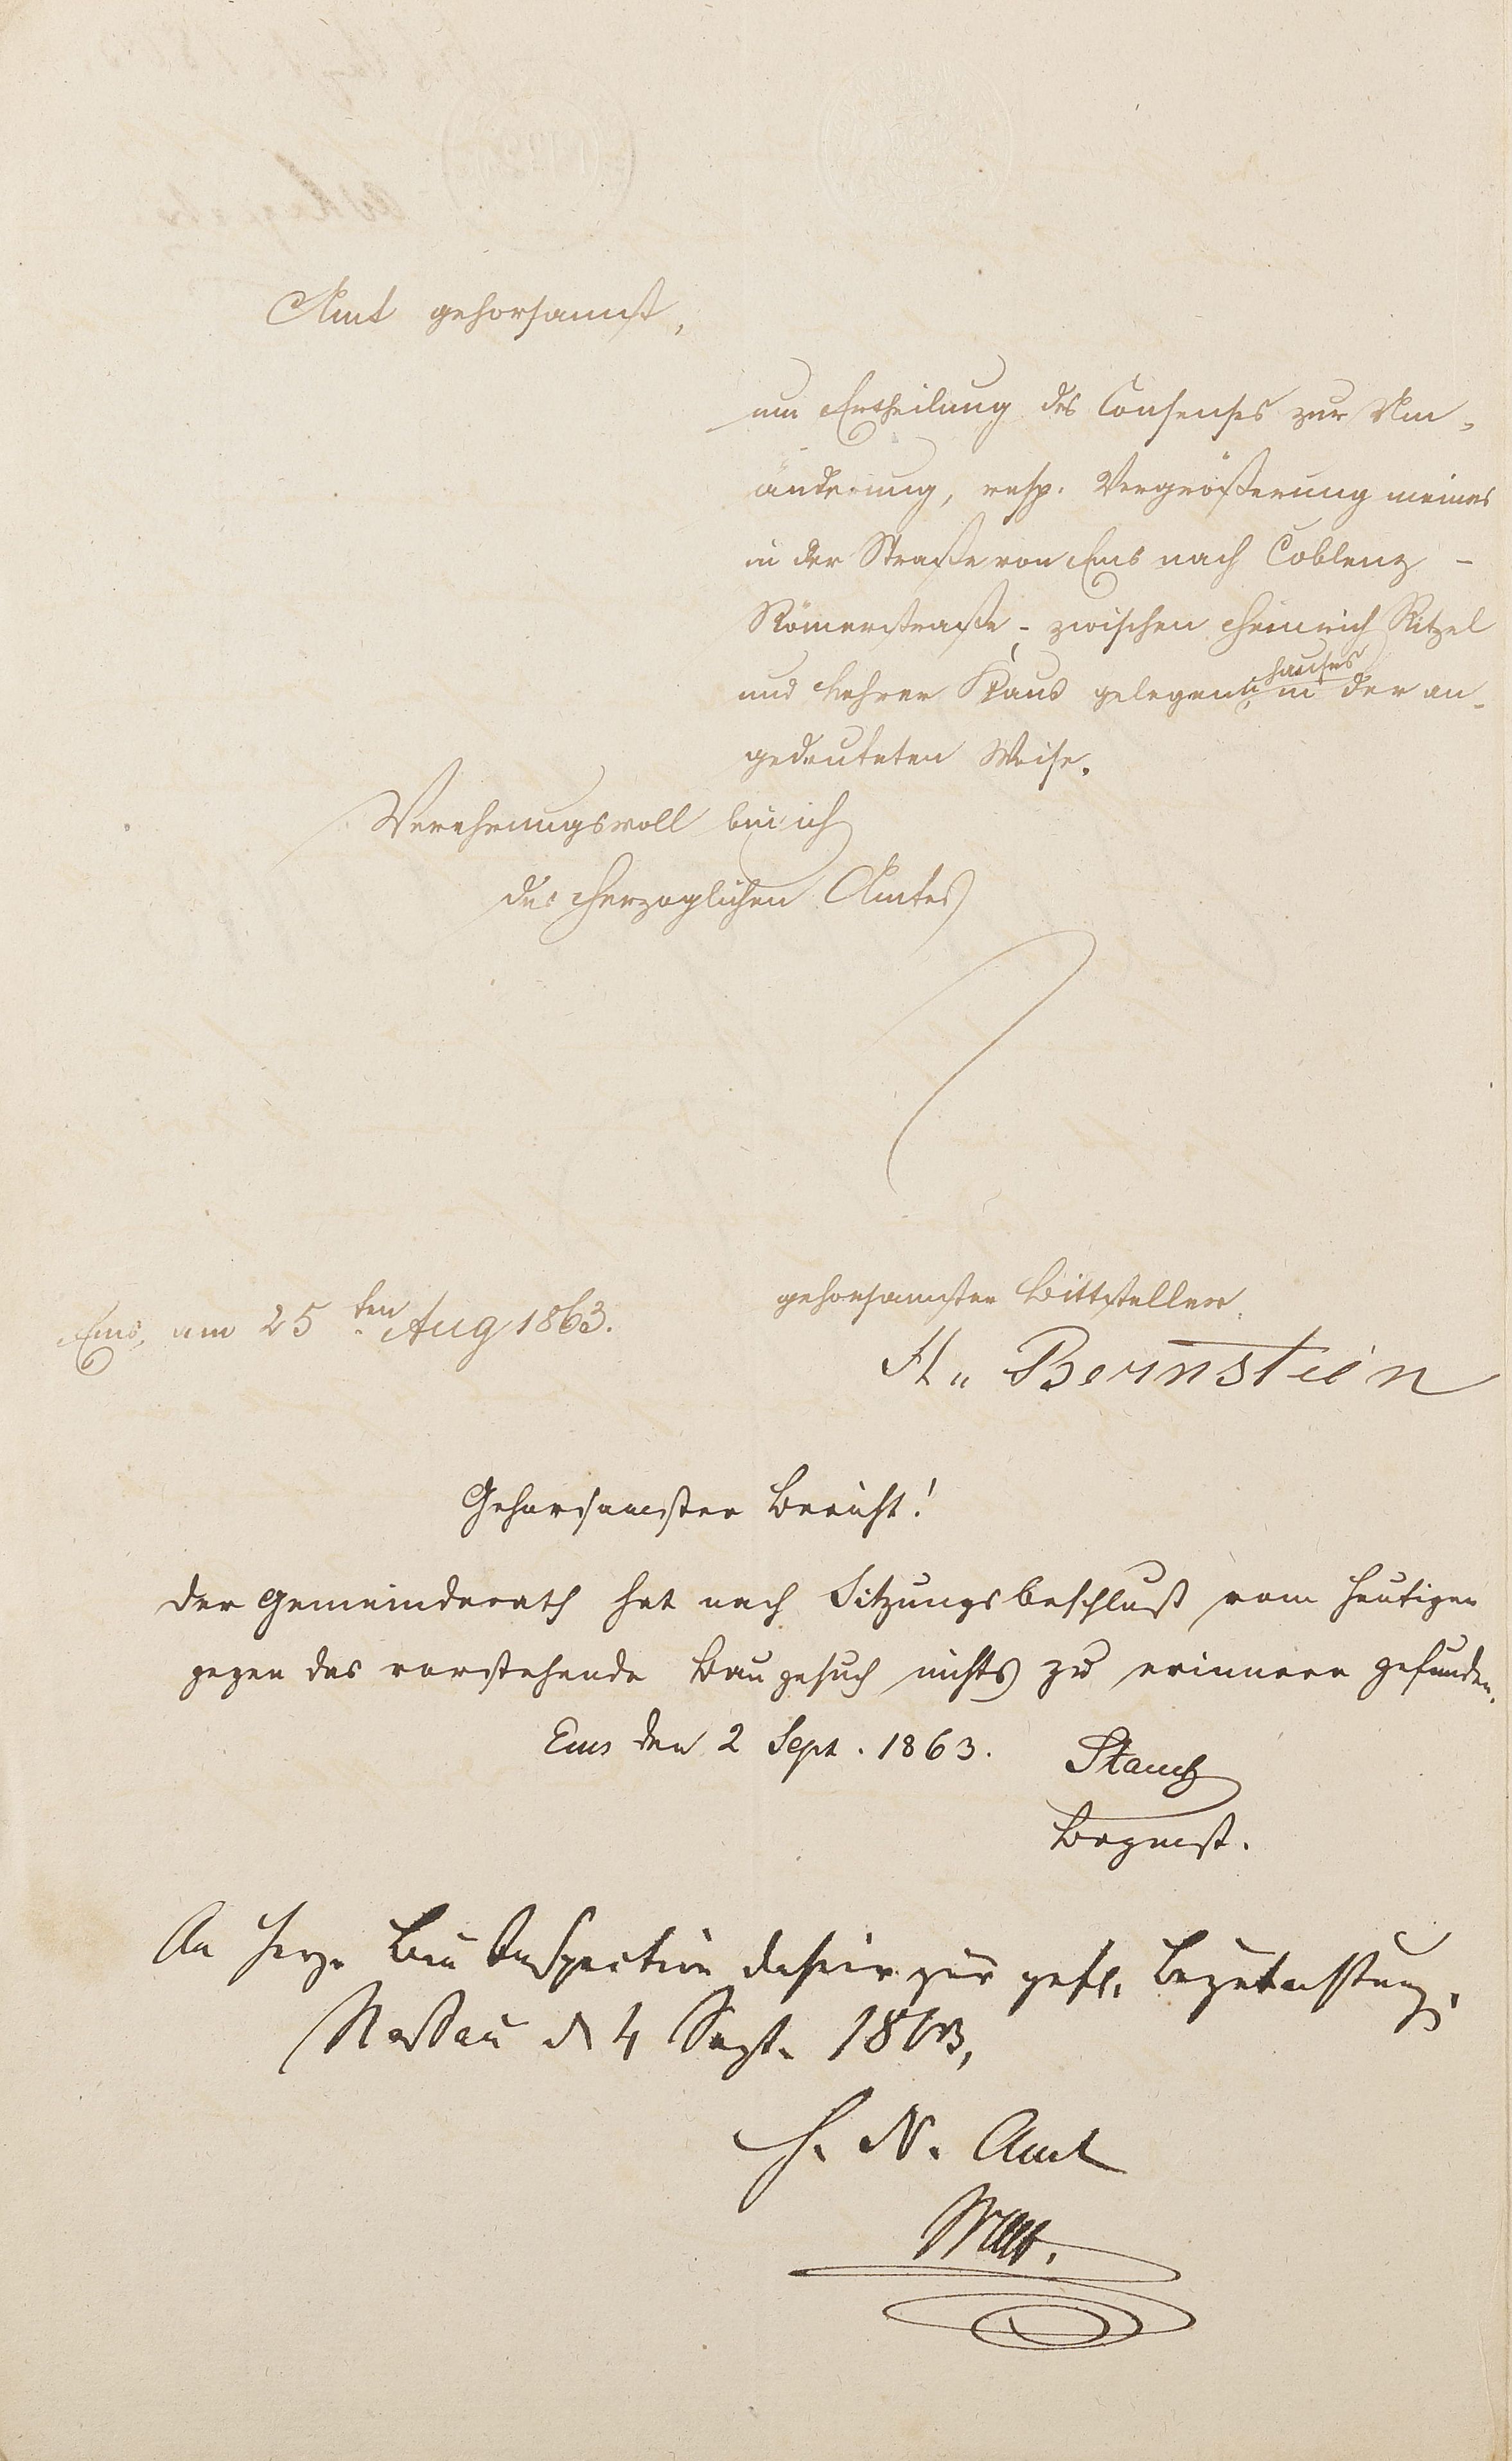 Amt gehorsamst,
um Ertheilung des Consenses zur Um-
änderung, resp. Vergrößerung meines
in der Straße von Ems nach Coblenz -
Römerstraße - zwischen Heinrich Ritzel
und Lehrer Klaus gelegenen hauses in der an-
gedeuteten Weise.
Verehrungsvoll bin ich
des Herzoglichen Amtes
gehorsamster Bittsteller
Ems, am 25ten Aug 1863.
H. Bernstein
Gehorsamster Bericht!
Der Gemeinderath hat nach Sitzungsbeschluß vom Heutigen
gegen das vorstehende Baugesuch nichts zu erinnern gefunden.
Ems den 2 Sept. 1863.
Brgmst.
An Herz. Bau Inspection dahier zur gefl. Begutachtung.
Nassau d 4 Sept. 1863,
H. N. Amt